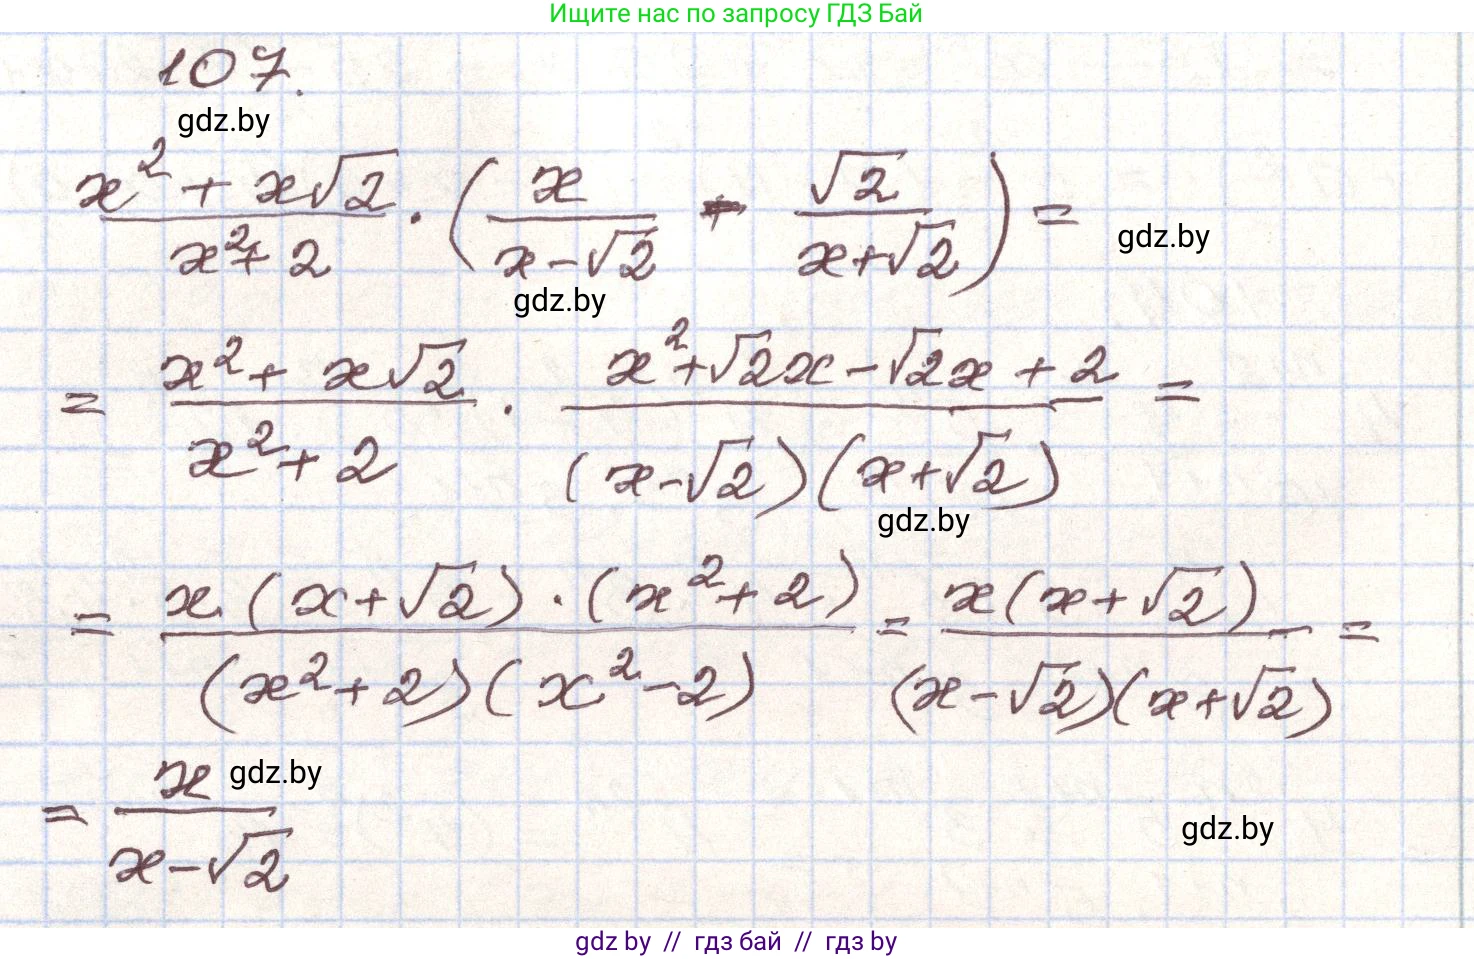 Ищите нас по запросу ГДЗ Бай
107.
gdz.by
(x² + x√2)/(x² + 2) · (x/(x - √2) - √2/(x + √2)) =
gdz.by
gdz.by
= (x² + x√2)/(x² + 2) · (x² + √2x - √2x + 2)/((x - √2)(x + √2)) =
gdz.by
= (x(x + √2) · (x² + 2))/((x² + 2)(x² - 2)) = (x(x + √2))/((x - √2)(x + √2)) =
= x/(x - √2)
gdz.by
gdz.by
gdz by // гдз бай // гдз by